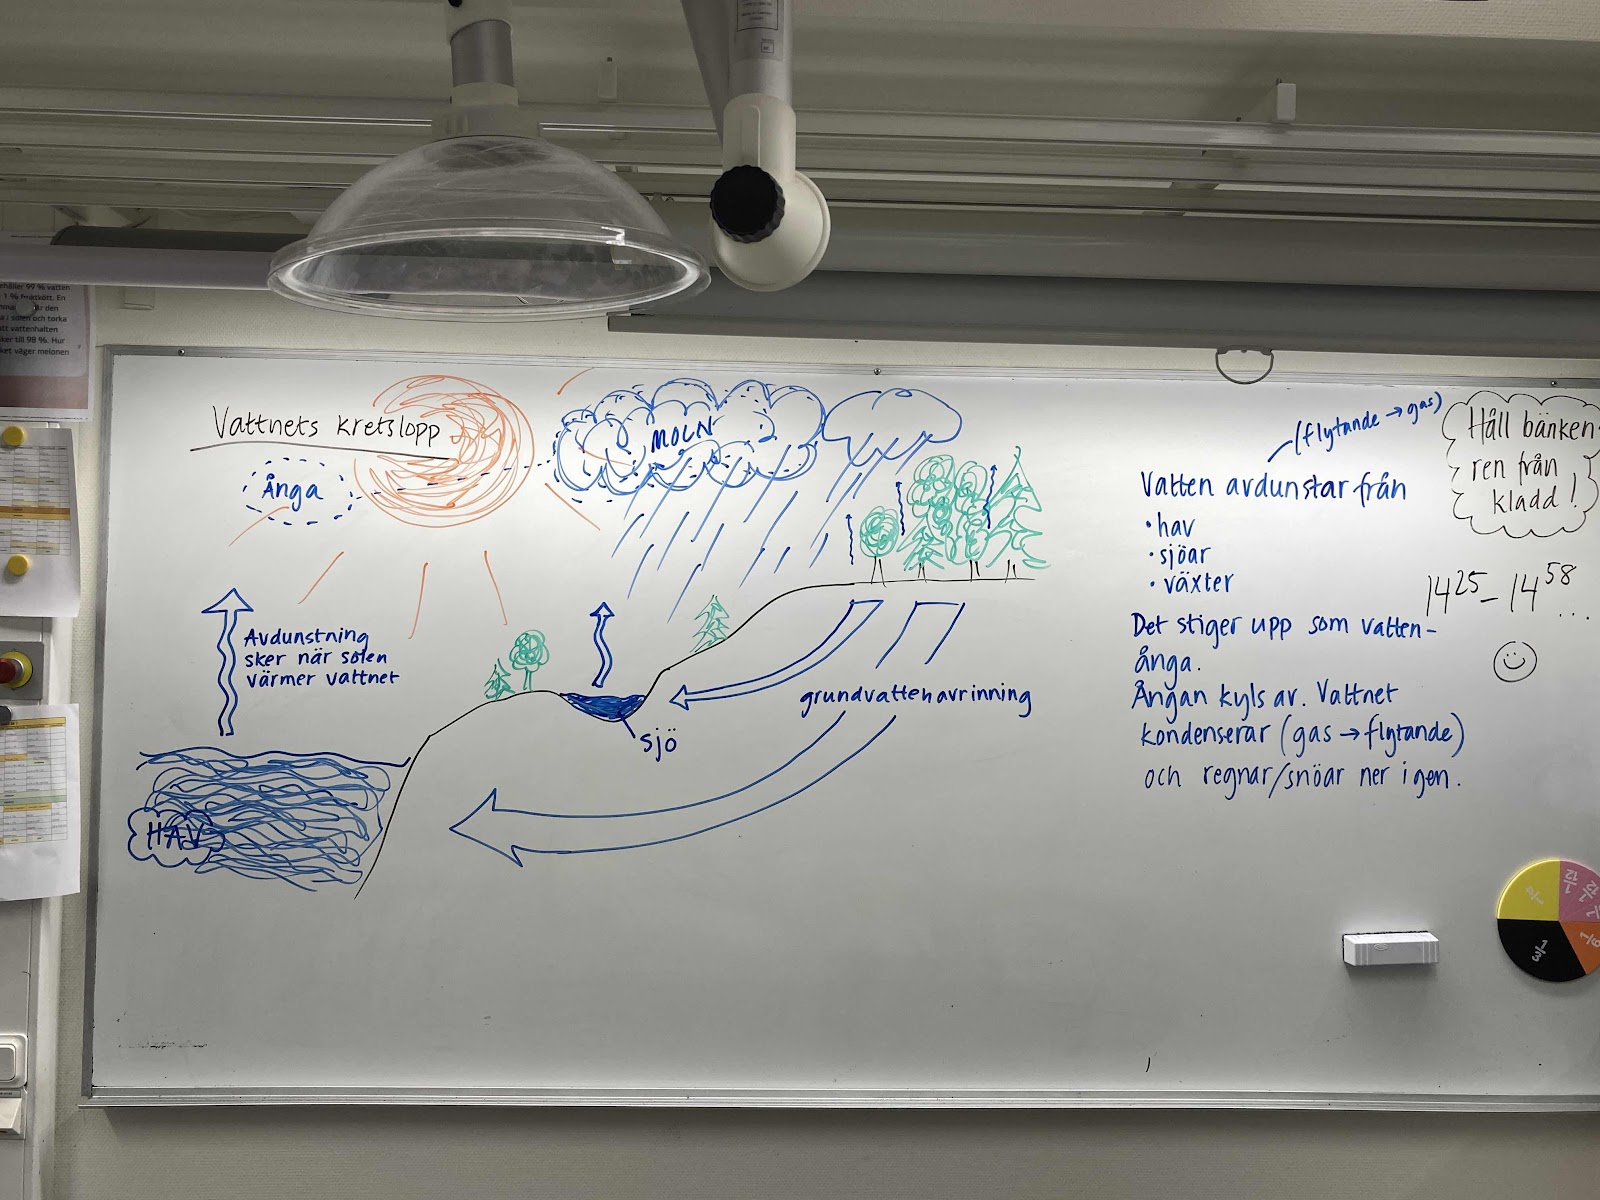 ehåller 99 % vatten
1 % fruktkött. En
a i solen och torka
att vattenhalten
ker till 98 %. Hur
ket väger melonen
Vattnets kretslopp
Ånga
MOLN
Avdunstning
sker när solen
värmer vattnet
sjö
grundvattenavrinning
HAV
(flytande → gas)
Vatten avdunstar från
• hav
• sjöar
• växter
Det stiger upp som vatten-
ånga.
Ångan kyls av. Vattnet
kondenserar (gas → flytande)
och regnar/snöar ner igen.
Håll bänken
ren från
kladd!
14 25 – 14 58 ...
1/4
1/12
1/3
1/6